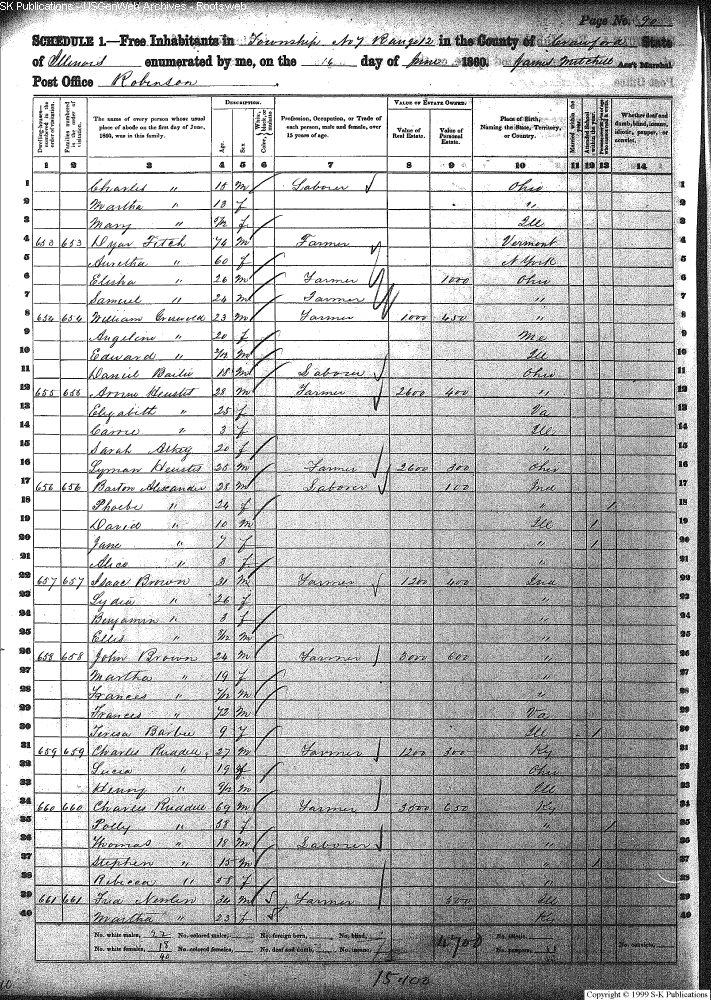 SK Publications - USGenWeb Archives - Rootsweb
Page No. 90
SCHEDULE 1.—Free Inhabitants in Township No 7 Range 12 in the County of Crawford State
of Illinois enumerated by me, on the 16 day of June 1860. James Mitchell Ass't Marshal
Post Office Robinson
Dwelling-houses—numbered in the order of visitation.
Families numbered in the order of visitation.
The name of every person whose usual place of abode on the first day of June, 1860, was in this family.
DESCRIPTION.
Age.
Sex.
Color, White, black, or mulatto
Profession, Occupation, or Trade of each person, male and female, over 15 years of age.
VALUE OF ESTATE OWNED.
Value of Real Estate.
Value of Personal Estate.
Place of Birth, Naming the State, Territory, or Country.
Married within the year.
Attended School within the year.
Whether deaf and dumb, blind, insane, idiotic, pauper, or convict.
1 2 3 4 5 6 7 8 9 10 11 12 13 14
1 Charles " 15 m Laborer Ohio 1
2 Martha " 13 f " 2
3 Mary " f Ill 3
4 653 653 Dyar Fitch 74 m Farmer Vermont 4
5 Auretha " 60 f N York 5
6 Elisha " 26 m Farmer 1000 Ohio 6
7 Samuel " 24 m Farmer " 7
8 654 654 William 23 m Farmer 1000 450 " 8
9 Angeline " 20 f Me 9
10 Edward " m Ill 10
11 Daniel 18 m Laborer Ohio 11
12 655 655 28 m Farmer 2600 400 " 12
13 Elizabeth " 25 f Va 13
14 Carrie " 3 f Ill 14
15 Sarah 20 f " 15
16 Lyman 25 m Farmer 2600 300 Ohio 16
17 656 656 Barton Alexander 28 m Laborer 100 Ind 17
18 Phoebe " 24 f " 1 18
19 David " 10 m Ill 1 19
20 Jane " 7 f " 1 20
21 Alice " 3 f " 21
22 657 657 Isaac Brown 31 m Farmer 1200 400 Ind 22
23 Lydia " 26 f " 23
24 Benjamin " 3 f " 24
25 Ellis " m " 25
26 658 658 John Brown 24 m Farmer 3000 600 " 26
27 Martha " 19 f " 27
28 Frances " m " 28
29 Frances " 72 m Va 29
30 Teresa Barbee 9 f Ill 1 30
31 659 659 Charles Ruddell 27 m Farmer 1200 300 Ky 31
32 Lucia " 19 f Ohio 32
33 Henry " m Ill 33
34 660 660 Charles Ruddell 69 m Farmer 3000 650 Ky 34
35 Polly " 38 f " 1 35
36 Thomas " 18 m Laborer " 36
37 Stephen " 15 m " 1 37
38 Rebecca " 58 f " 38
39 661 661 Newlin 34 m Farmer 500 Ill 39
40 Martha " 23 f Ky 40
No. white males, 22 No. colored males, No. foreign born, No. blind,
No. white females, 18 No. colored females, No. deaf and dumb, No. insane, No. idiotic, No. paupers, No. convicts,
40
15400
Copyright © 1999 S-K Publications